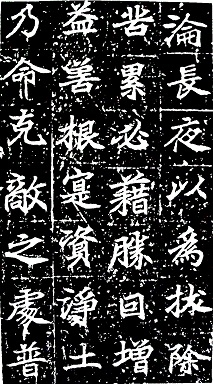 淪長夜以爲拔除
苦累必藉勝因增
益善根寔資淨土
乃命克敵之處普